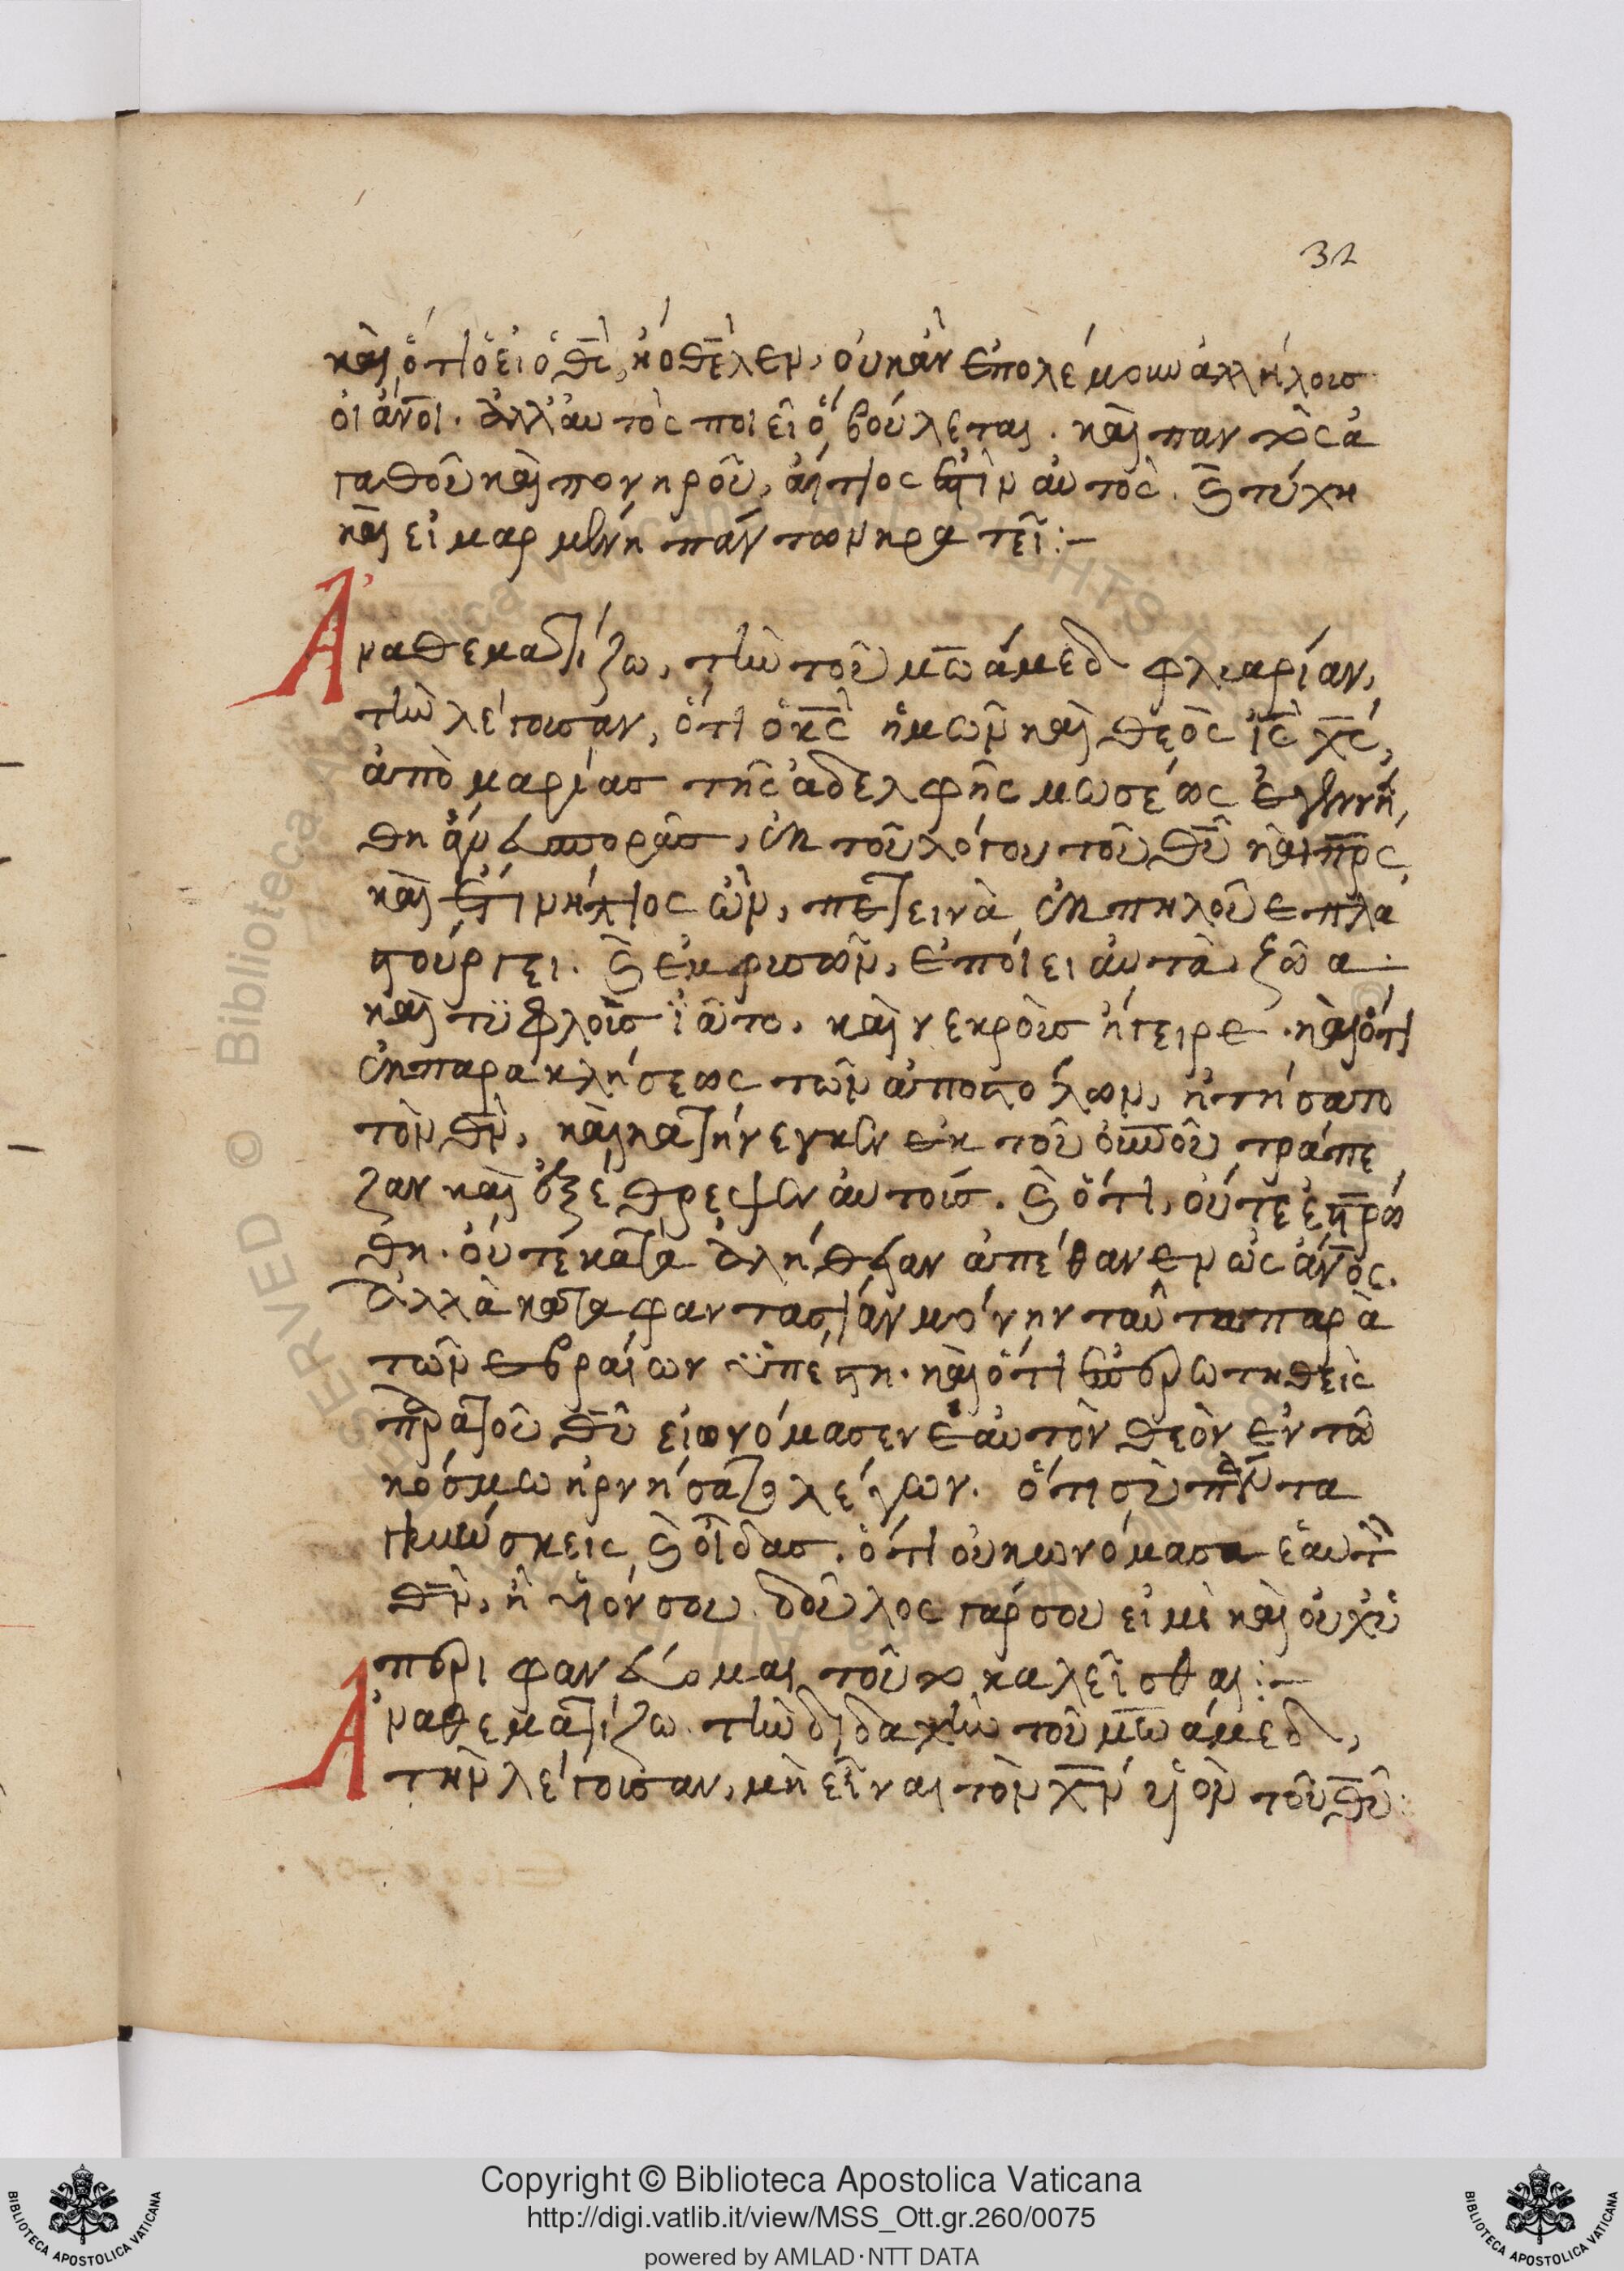 32
καὶ ὅτι ὁ εἰ ὁ θς̅ ἤθελεν, οὐκ ἂν ἐπολέμουν ἀλλήλοις
οἱ ἄνοι̅. ἀλλ' αὐτὸς ποιεῖ ὃ βούλεται. καὶ παντὸς ἀ
γαθοῦ καὶ πονηροῦ, αἴτιος ἐστὶν αὐτὸς. καὶ τύχη
καὶ εἱμαρμένη πάντων κρατεῖ:–
Ἀναθεματίζω, τὴν τοῦ μωάμεδ φλυαρίαν,
τὴν λέγουσαν, ὅτι ὁ κς̅ ἡμῶν καὶ θεὸς ις̅ χς̅,
ἀπὸ μαρίας τῆς ἀδελφῆς μωσέως ἐγεννή
θη ἄνευ σπορᾶς, ἐκ τοῦ λόγου τοῦ θυ̅ καὶ πνς̅
καὶ ἔτι νήπιος ὢν, πετεινὰ ἐκ πηλοῦ ἐπλα
στούργει. καὶ ἐμφυσῶν, ἐποίει αὐτὰ ζῶα.
καὶ τυφλοὺς ἰᾶτο. καὶ νεκροὺς ἤγειρε. καὶ ὅτι
ἐκ παρακλήσεως τῶν ἀποστόλων, ἠτήσατο
τὸν θν̅, καὶ κατήνεγκεν ἐκ τοῦ οὐνοῦ̅ τράπε
ζαν καὶ ἐξέθρεψεν αὐτούς. καὶ ὅτι, οὔτε ἐστρώ̅
θη. οὔτε κατὰ ἀλήθειαν ἀπέθανεν ὡς ἄνος̅.
ἀλλὰ κατὰ φαντασίαν μόνην ταῦτα παρὰ
τῶν ἑβραίων ὑπέστη. καὶ ὅτι ἐπερωτηθεὶς
παρὰ τοῦ θυ̅ εἰ ὠνόμασεν ἑαυτὸν θεὸν ἐν τῶ
κόσμω ἠρνήσατο λέγων. ὅτι σὺ πάντα
γινώσκεις καὶ οἶδας. ὅτι οὐκ ὠνόμασα ἑαυτὸν
θν̅, ἢ υἱόν σου. δοῦλος γάρ σου εἰμὶ καὶ οὐχ ὑ
περιφανεύομαι τοῦτο καλεῖσθαι:–
Ἀναθεματίζω τὴν διδαχὴν τοῦ μωάμεδ,
τὴν λέγουσαν, μὴ εἶναι τὸν χν̅ υἱὸν τοῦ θυ̅:
Copyright © Biblioteca Apostolica Vaticana
http://digi.vatlib.it/view/MSS_Ott.gr.260/0075
powered by AMLAD·NTT DATA
BIBLIOTECA APOSTOLICA VATICANA
BIBLIOTECA APOSTOLICA VATICANA